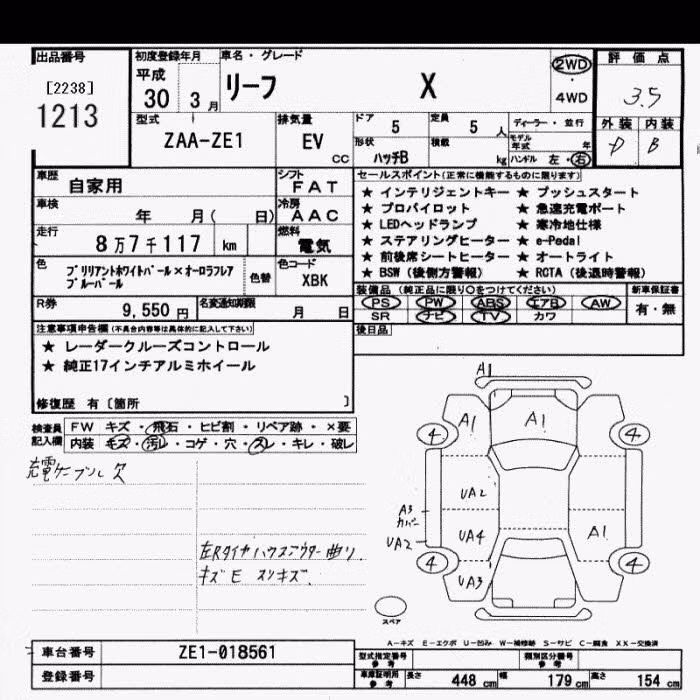 出品番号
[2238]
1213
初度登録年月
平成
30 3 月
車名・グレード
リーフ X
2WD
・
4WD
評価点
3.5
外装 内装
D B
型式
ZAA-ZE1
排気量
EV
CC
ドア
5
定員
5 人
ディーラー・並行
形状
ハッチB
積載
kg
モデル年式 年
ハンドル 左・右
車歴
自家用
シフト
FAT
車検
年 月( 日)
冷房
AAC
走行
8万7千117 km
燃料
電気
色
ブリリアントホワイトパール×オーロラフレア
ブルーパール
色替
色コード
XBK
R券
9,550 円
名変通知期限
月 日
セールスポイント(正常に機能するものに限ります)
★ インテリジェントキー ★ プッシュスタート
★ プロパイロット ★ 急速充電ポート
★ LEDヘッドランプ ★ 寒冷地仕様
★ ステアリングヒーター ★ e-Pedal
★ 前後席シートヒーター ★ オートライト
★ BSW(後側方警報) ★ RCTA(後退時警報)
装備品(純正品に限り○をつけてください)
PS PW ABS エアB AW
SR ナビ TV カワ
新車保証書
有・無
後日品
注意事項申告欄(不具合内容等は具体的に記入して下さい)
★ レーダークルーズコントロール
★ 純正17インチアルミホイール
修復歴 有〔箇所 〕
検査員
記入欄
FW キズ・飛石・ヒビ割・リペア跡・×要
内装 キズ・汚レ・コゲ・穴・スレ・キレ・破レ
充電ケーブル 欠
左Rタイヤハウスアウター曲り
キズE スリキズ
A1
A1
A1
4
4
UA2
A3
カバー
UA2
UA4
A1
4
4
UA3
スペア
A-キズ E-エクボ U-凹み W-補修跡 S-サビ C-腐食 XX-交換済
車台番号
ZE1-018561
登録番号
型式指定番号
参考
類別区分番号
参考
車庫証明用
参考
長さ 448 cm 幅 179 cm 高さ 154 cm